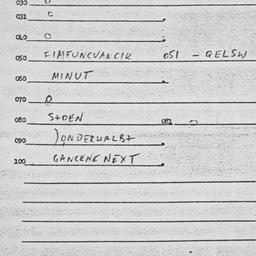 030
031 c
0L0 O
050 FIMFUNCVARCIK 051 - QELSW
060 MINUT
070 O
080 S+OEN 082
090 )ONDERWLBT
100 GANCENE NEXT